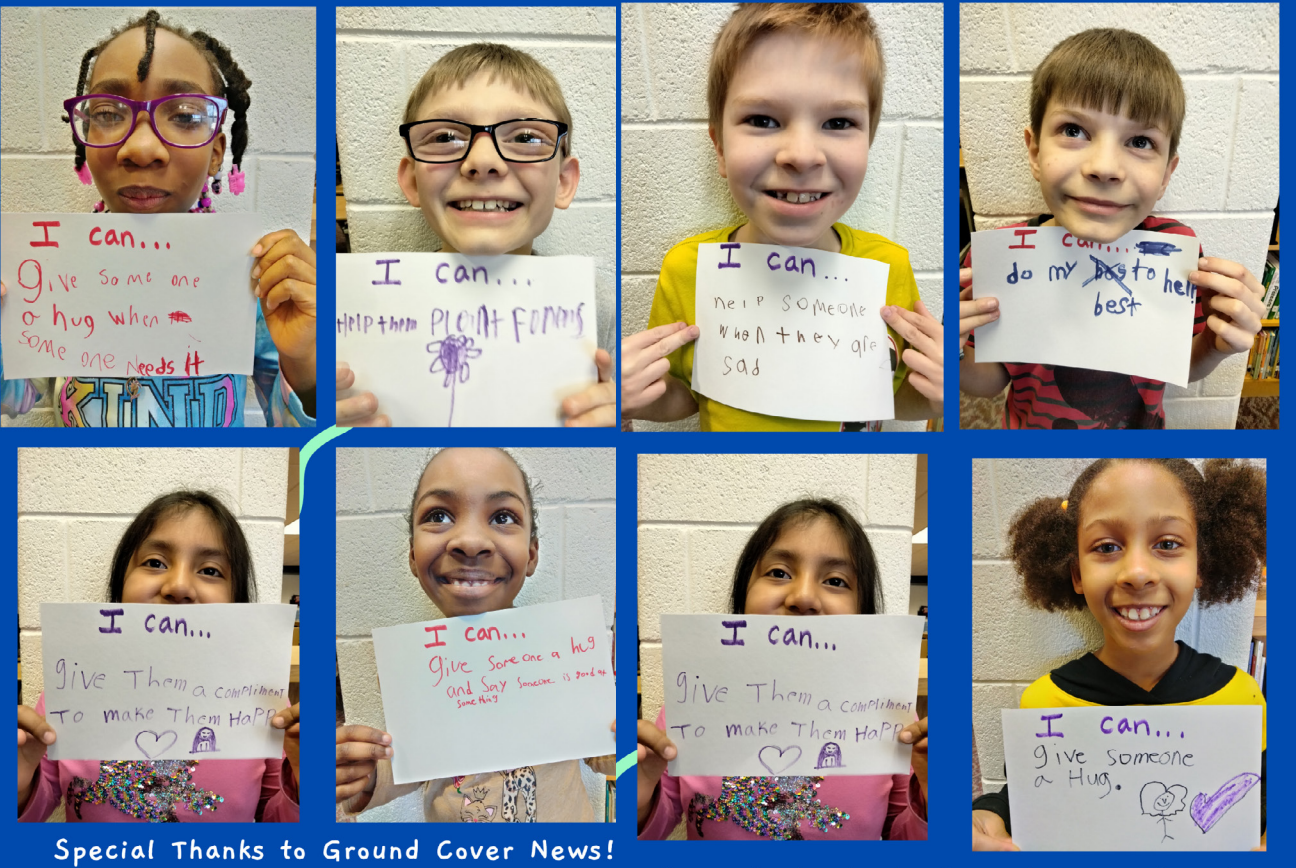 I can...
Give Some one
a hug when
Some one Needs it
KIND
I can...
Help them Plant
I can...
help someone
when they are
sad
I can...
do my to help
best
I can...
give Them a compliment
To make Them HaPP
I can...
give someone a hug
and Say someone is good at
something
I can...
give Them a compliment
To make Them HaPP
I can...
give someone
a Hug.
Special Thanks to Ground Cover News!